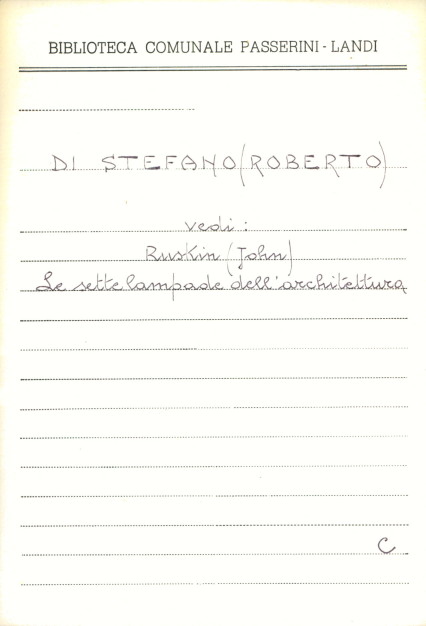 BIBLIOTECA COMUNALE PASSERINI-LANDI
DI STEFANO (ROBERTO)
vedi:
Ruskin (John)
Le sette lampade dell'architettura
C